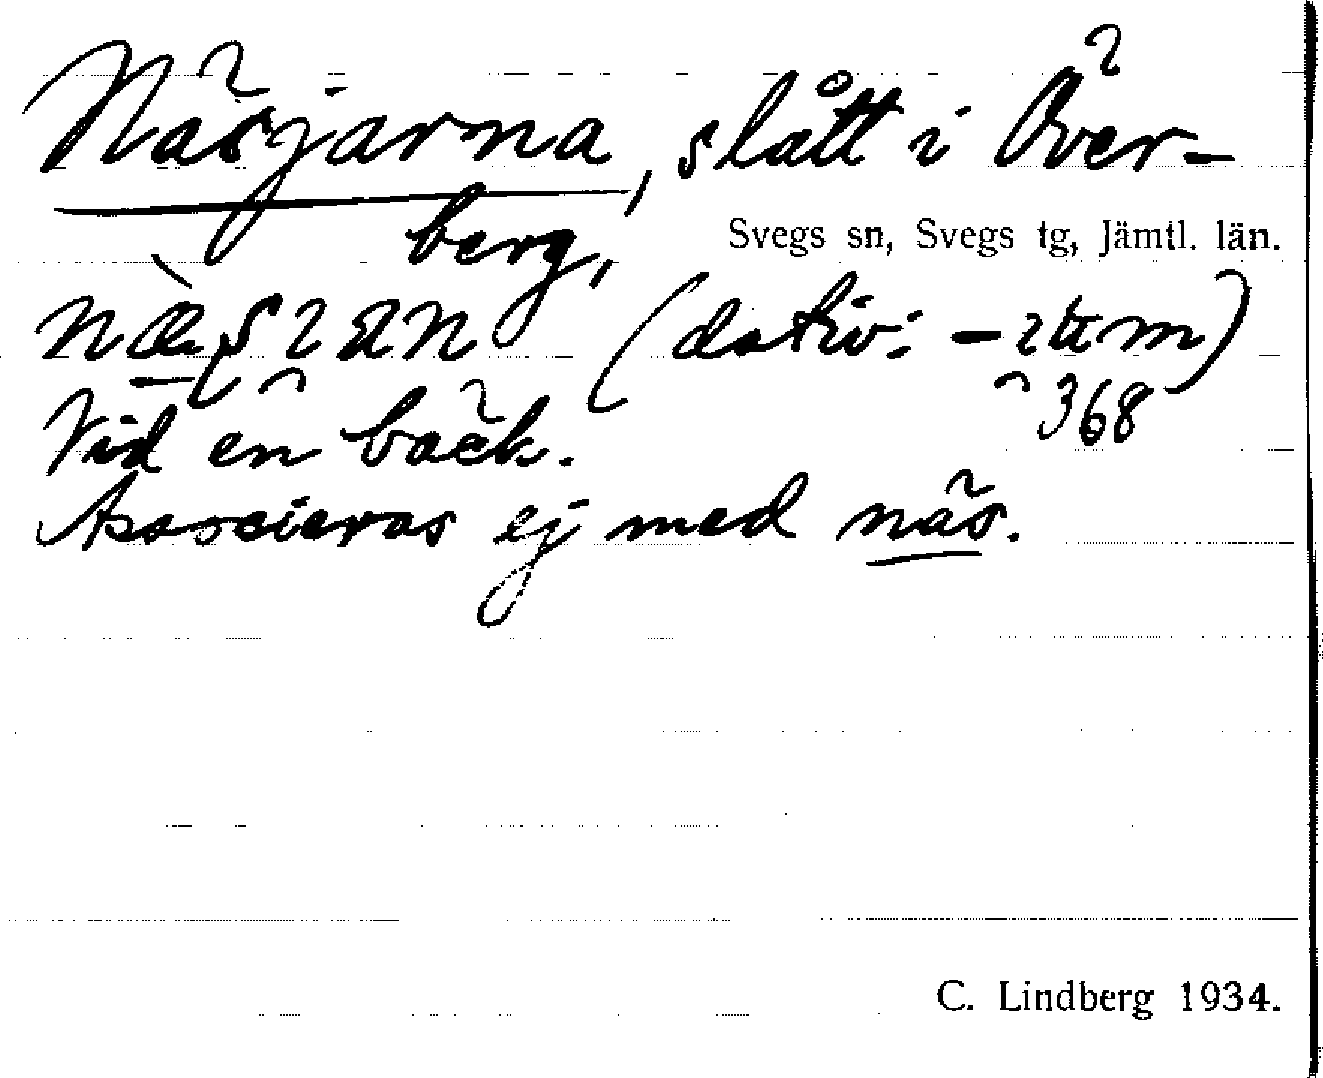 Näsjärna, slått i Över-
berg,
Svegs sn, Svegs tg, Jämtl. län.
(dativ:
368
Vid en bäck.
Associeras ej med näs.
C. Lindberg 1934.